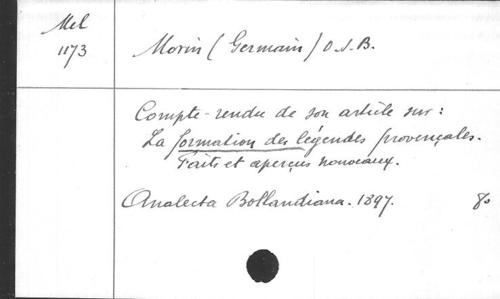 Mel
1173
Morin (Germain) O.S.B.
Compte-rendu de son article sur :
La formation des légendes provençales.
Faits et aperçus nouveaux.
Analecta Bollandiana. 1897. 8o